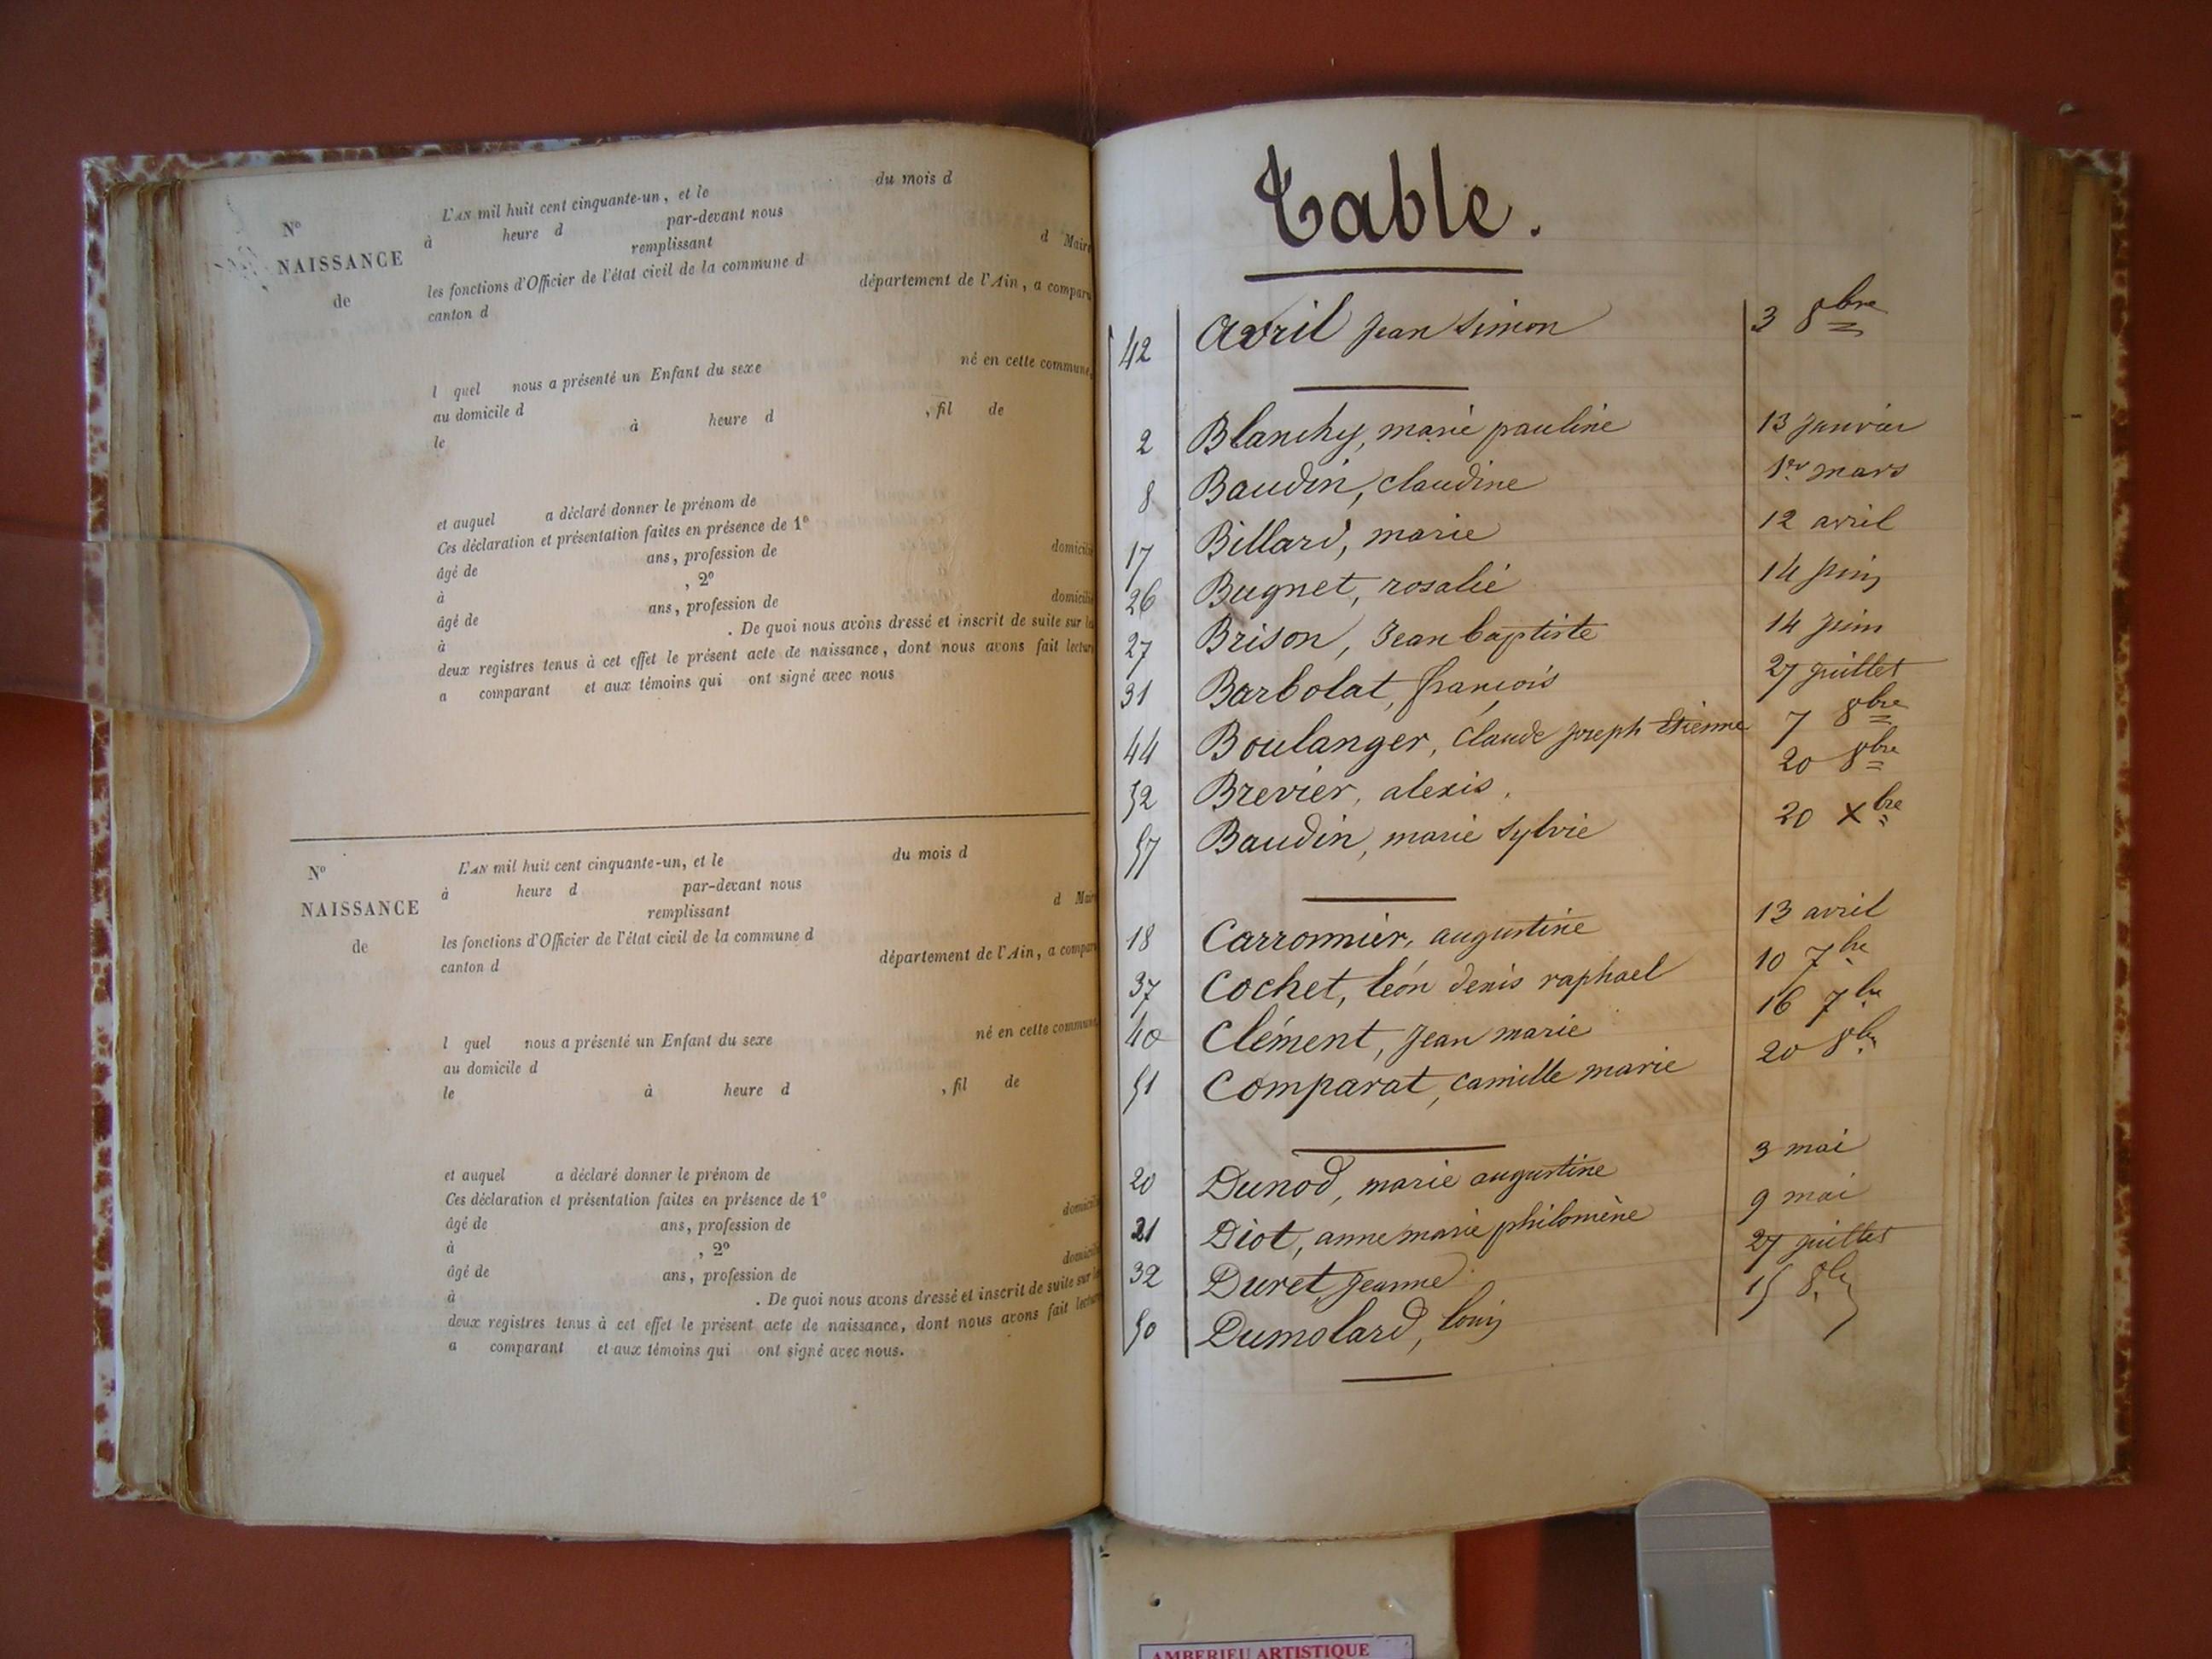 du mois d
L'AN mil huit cent cinquante-un, et le
N°
à heure d par-devant nous
d Maire
remplissant
NAISSANCE
les fonctions d'Officier de l'état civil de la commune d
de
département de l'Ain, a comparu
canton d
né en cette commune,
l quel nous a présenté un Enfant du sexe
au domicile d
, fil de
le à heure d
et auquel a déclaré donner le prénom de
Ces déclaration et présentation faites en présence de 1°
âgé de ans, profession de domicilié
à , 2°
âgé de ans, profession de domicilié
à . De quoi nous avons dressé et inscrit de suite sur les
deux registres tenus à cet effet le présent acte de naissance, dont nous avons fait lecture
a comparant et aux témoins qui ont signé avec nous
N°
L'AN mil huit cent cinquante-un, et le du mois d
à heure d par-devant nous
NAISSANCE
remplissant d Maire
de
les fonctions d'Officier de l'état civil de la commune d
canton d département de l'Ain, a comparu
l quel nous a présenté un Enfant du sexe né en cette commune,
au domicile d
le à heure d , fil de
et auquel a déclaré donner le prénom de
Ces déclaration et présentation faites en présence de 1°
âgé de ans, profession de domicilié
à , 2°
âgé de ans, profession de domicilié
à . De quoi nous avons dressé et inscrit de suite sur les
deux registres tenus à cet effet le présent acte de naissance, dont nous avons fait lecture
a comparant et aux témoins qui ont signé avec nous.
Table.
42 Avril Jean Simon 3 8bre
2 Blanchy, marie pauline 13 Janvier
8 Baudin, claudine 1er mars
17 Billard, marie 12 avril
26 Bugnet, rosalie 14 Juin
27 Brison, Jean baptiste 14 Juin
31 Barbolat, françois 27 juillet
44 Boulanger, Claude Joseph Etienne 7 8bre
52 Brevier, alexis. 20 8bre
57 Baudin, marie Sylvie 20 Xbre
18 Carronnier, augustine 13 avril
37 Cochet, léon denis raphael 10 7bre
40 Clément, Jean marie 16 7bre
51 Comparat, camille marie 20 8bre
20 Dunod, marie augustine 3 mai
21 Diot, anne marie philomène 9 mai
32 Duret, Jeanne 27 juillet
50 Dumolard, louis 15 8bre
AMBERIEU ARTISTIQUE